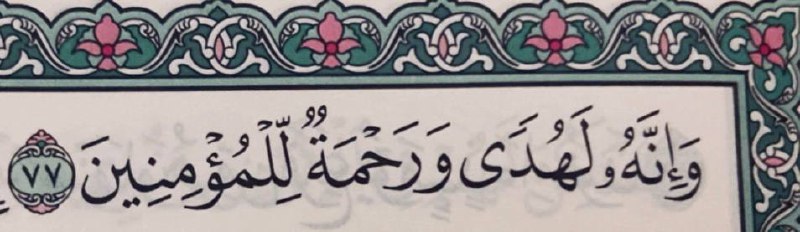 وَإِنَّهُۥ لَهُدًى وَرَحْمَةٌ لِّلْمُؤْمِنِينَ ٧٧